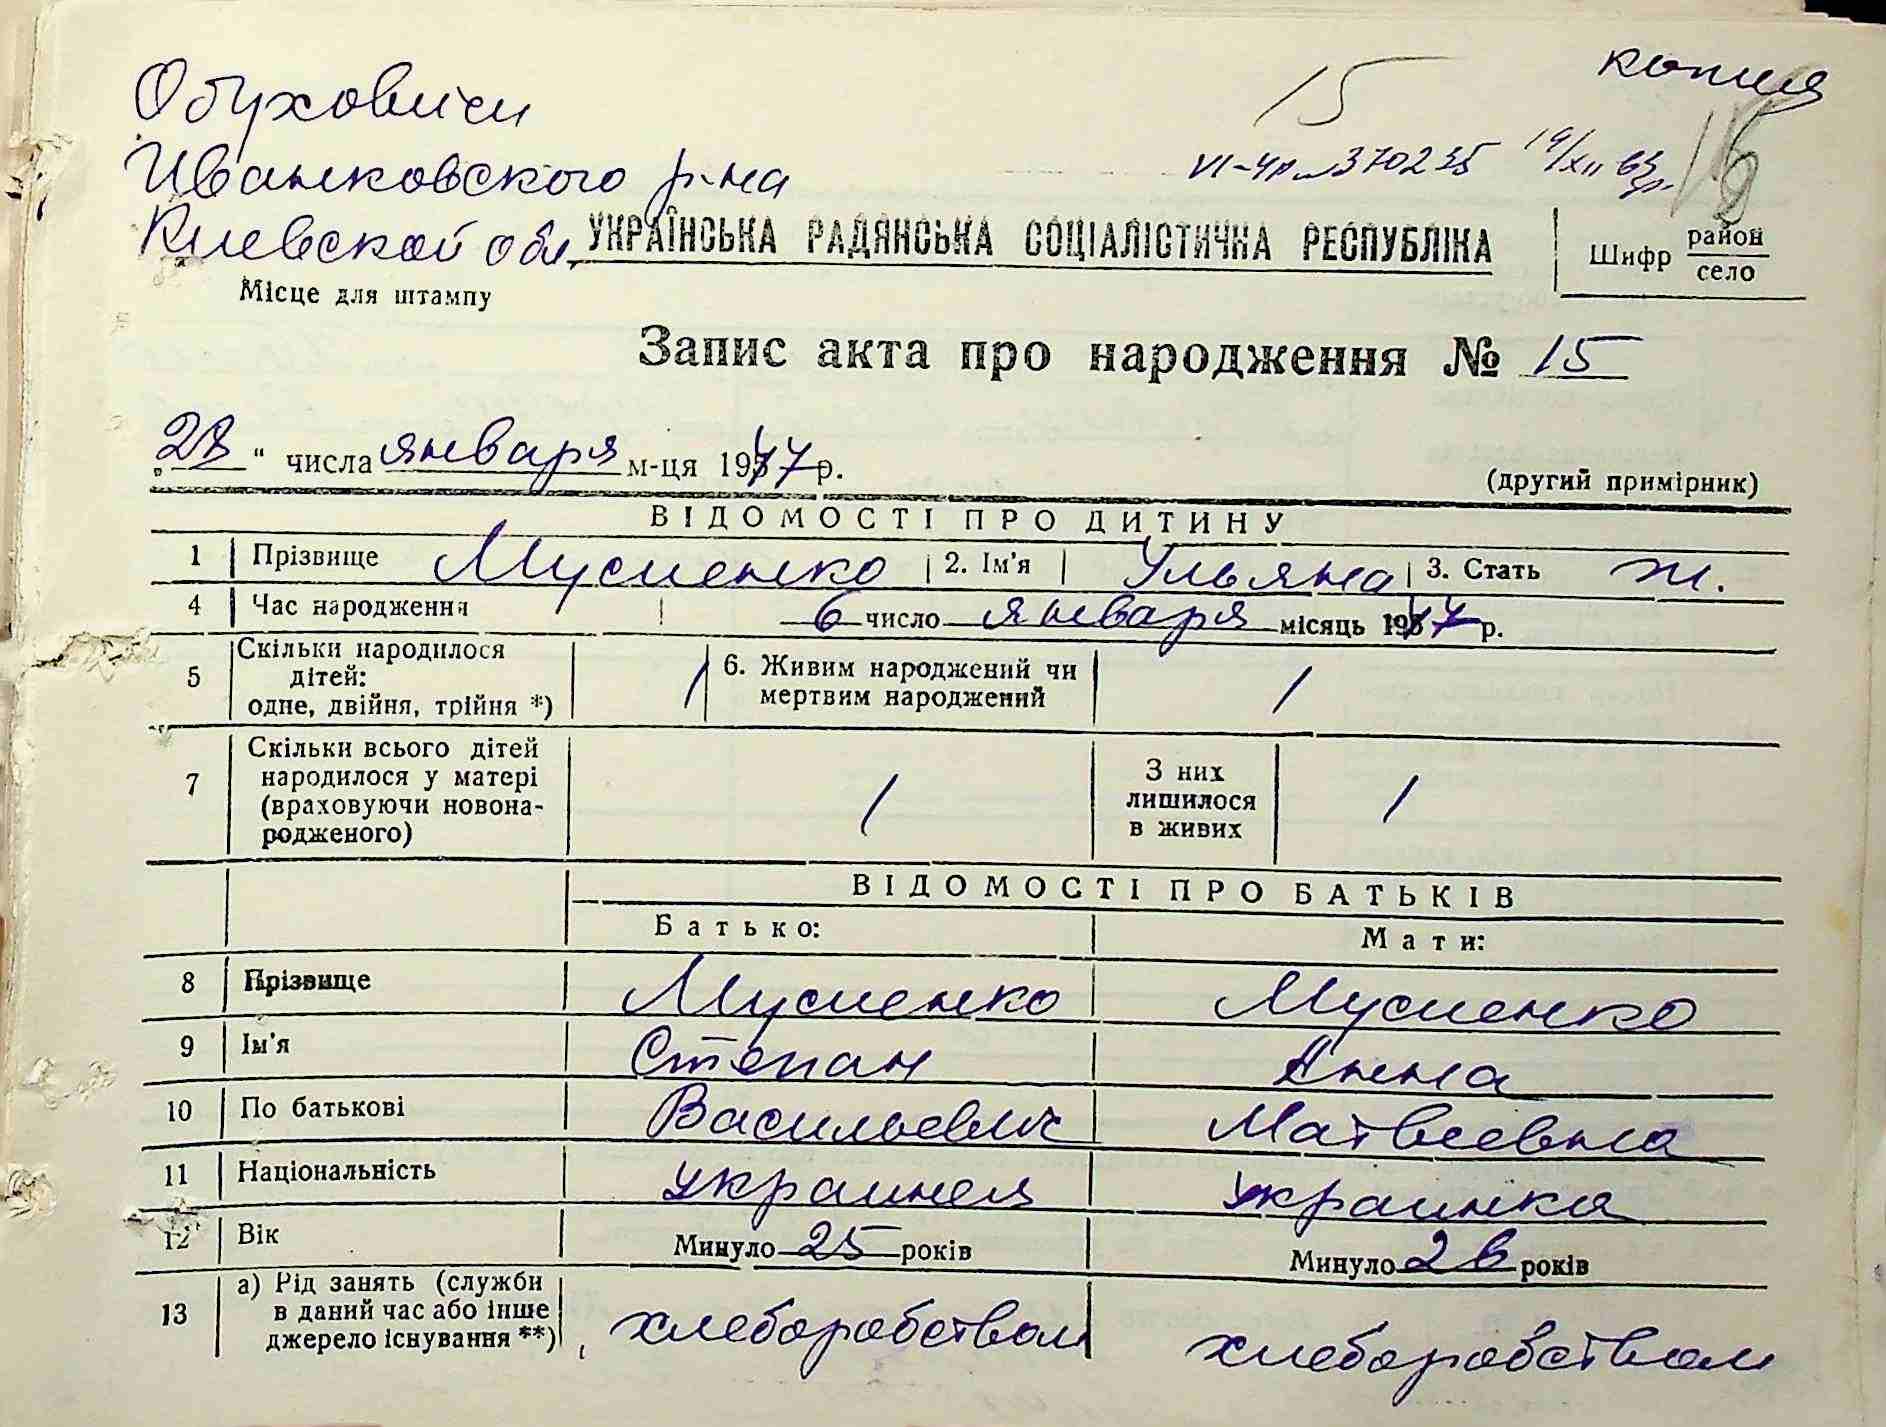 копия
15
Обуховичи
Иванковского р-на
Киевской обл.
VI-ЧР №370235 19/XII 63
УКРАЇНСЬКА РАДЯНСЬКА СОЦІАЛІСТИЧНА РЕСПУБЛІКА
Шифр район
село
Місце для штампу
Запис акта про народження № 15
„28“ числа января м-ця 1947 р.
(другий примірник)
ВІДОМОСТІ ПРО ДИТИНУ
1 Прізвище Мусиенко 2. Ім'я Ульяна 3. Стать ж.
4 Час народження 6 число января місяць 1947 р.
5 Скільки народилося дітей: одне, двійня, трійня *) 1 6. Живим народжений чи мертвим народжений 1
7 Скільки всього дітей народилося у матері (враховуючи новона-родженого) 1 З них лишилося в живих 1
ВІДОМОСТІ ПРО БАТЬКІВ
Батько: Мати:
8 Прізвище Мусиенко Мусиенко
9 Ім'я Степан Анна
10 По батькові Васильевич Матвеевна
11 Національність украинец украинка
12 Вік Минуло 25 років Минуло 26 років
13 а) Рід занять (служби в даний час або інше джерело існування **) хлеборобством хлеборобством